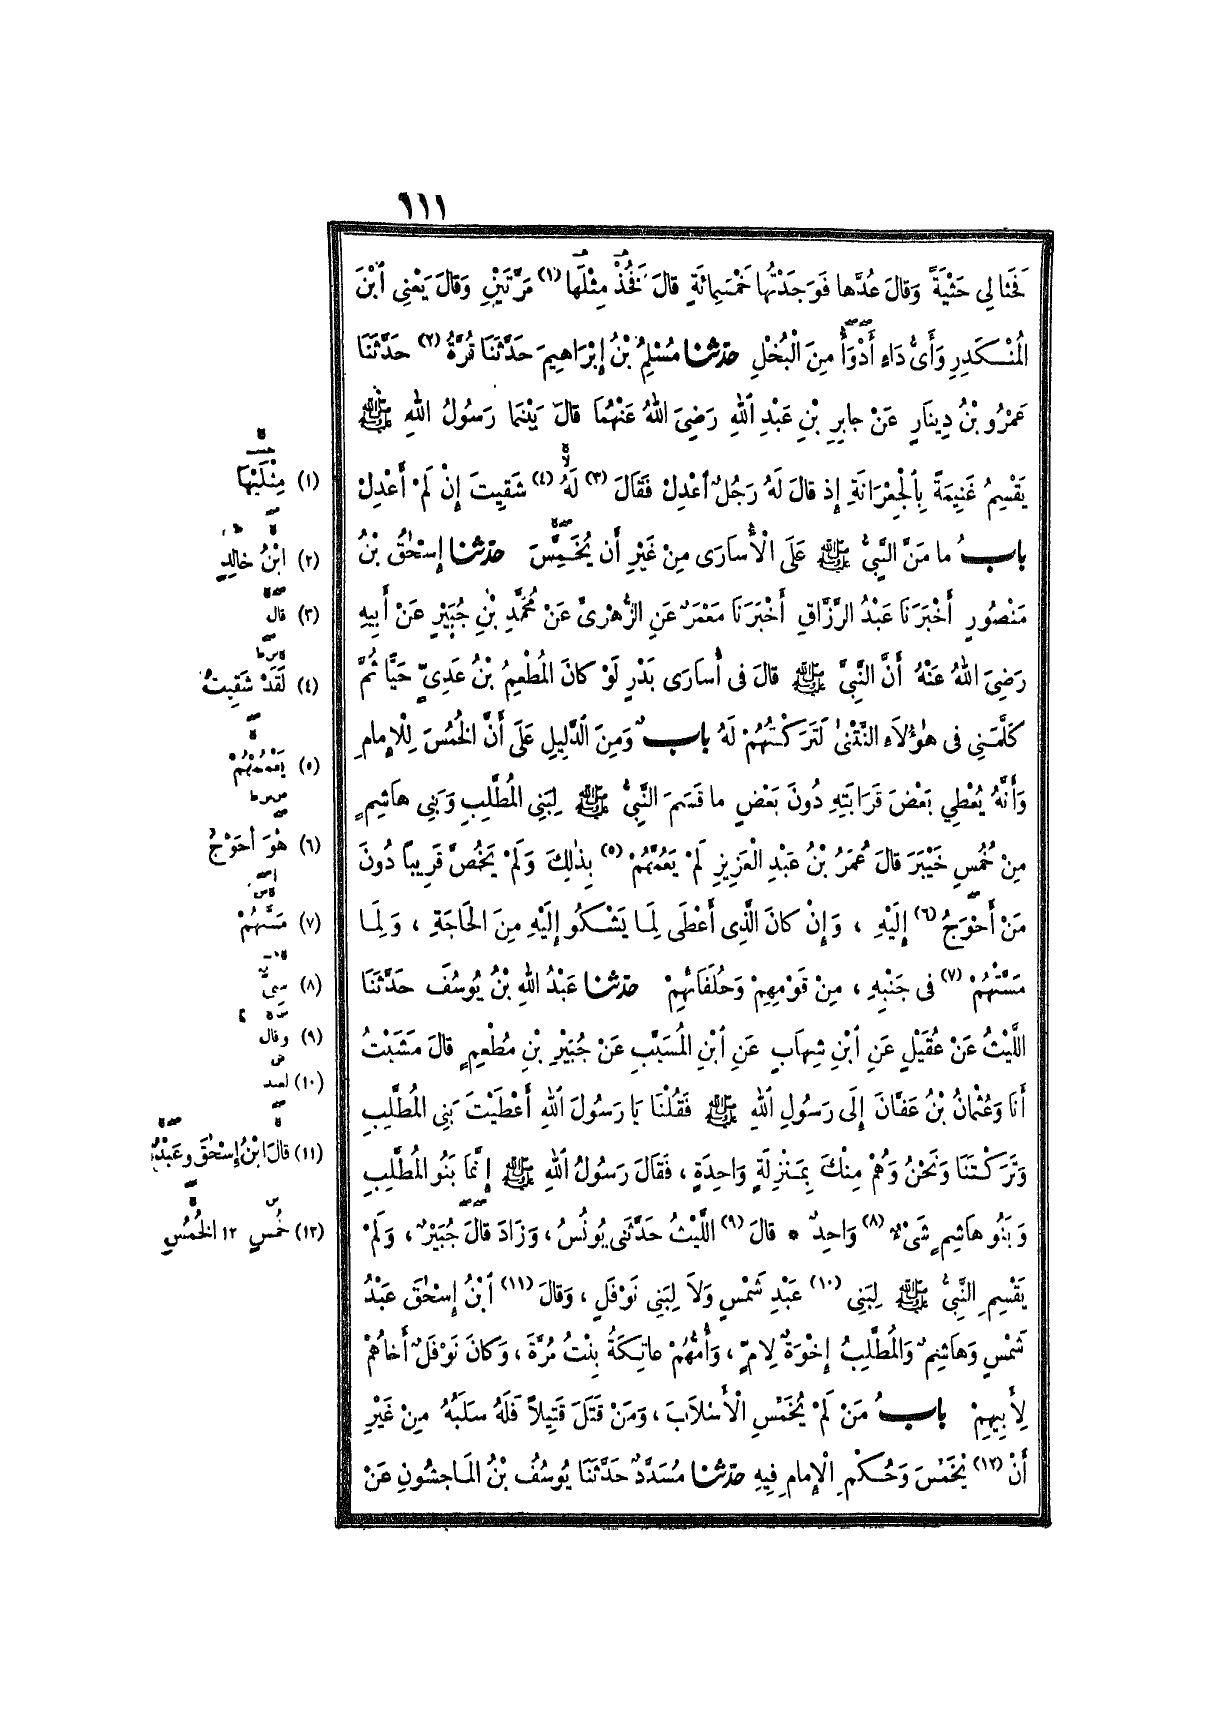 ١١١
فَحَثَا لِي حَثْيَةً وَقَالَ عُدَّهَا فَوَجَدْتُهَا خَمْسَمِائَةٍ قَالَ فَخُذْ مِثْلَهَا (١) مَرَّتَيْنِ وَقَالَ يَعْنِي ٱبْنَ
الْمُنْكَدِرِ وَأَىُّ دَاءٍ أَدْوَأُ مِنَ الْبُخْلِ حَدَّثَنَا مُسْلِمُ بْنُ إِبْرَاهِيمَ حَدَّثَنَا قُرَّةُ (٢) حَدَّثَنَا
عَمْرُو بْنُ دِينَارٍ عَنْ جَابِرِ بْنِ عَبْدِ ٱللهِ رَضِيَ اللهُ عَنْهُمَا قَالَ بَيْنَمَا رَسُولُ اللهِ ﷺ
يَقْسِمُ غَنِيمَةً بِالْجِعْرَانَةِ إِذْ قَالَ لَهُ رَجُلٌ ٱعْدِلْ فَقَالَ (٣) لَهُ (٤) شَقِيتَ إِنْ لَمْ أَعْدِلْ
بابُ مَا مَنَّ النَّبِيُّ ﷺ عَلَى الْأُسَارَى مِنْ غَيْرِ أَنْ يُخَمِّسَ حَدَّثَنَا إِسْحٰقُ بْنُ
مَنْصُورٍ أَخْبَرَنَا عَبْدُ الرَّزَّاقِ أَخْبَرَنَا مَعْمَرٌ عَنِ الزُّهْرِىِّ عَنْ مُحَمَّدِ بْنِ جُبَيْرٍ عَنْ أَبِيهِ
رَضِيَ اللهُ عَنْهُ أَنَّ النَّبِيَّ ﷺ قَالَ فِى أُسَارَى بَدْرٍ لَوْ كَانَ الْمُطْعِمُ بْنُ عَدِيٍّ حَيًّا ثُمَّ
كَلَّمَنِي فِى هٰؤُلَاءِ النَّتْنٰى لَتَرَكْتُهُمْ لَهُ بابٌ وَمِنَ الدَّلِيلِ عَلَى أَنَّ الْخُمُسَ لِلْإِمَامِ
وَأَنَّهُ يُعْطِي بَعْضَ قَرَابَتِهِ دُونَ بَعْضٍ مَا قَسَمَ النَّبِيُّ ﷺ لِبَنِي الْمُطَّلِبِ وَبَنِي هَاشِمٍ
مِنْ خُمُسِ خَيْبَرَ قَالَ عُمَرُ بْنُ عَبْدِ الْعَزِيزِ لَمْ يَعُمَّهُمْ (٥) بِذٰلِكَ وَلَمْ يَخُصَّ قَرِيبًا دُونَ
مَنْ أَحْوَجُ (٦) إِلَيْهِ ، وَإِنْ كَانَ الَّذِى أَعْطَى لِمَا يَشْكُو إِلَيْهِ مِنَ الْحَاجَةِ ، وَلِمَا
مَسَّتْهُمْ (٧) فِى جَنْبِهِ ، مِنْ قَوْمِهِمْ وَحُلَفَائِهِمْ حَدَّثَنَا عَبْدُ اللهِ بْنُ يُوسُفَ حَدَّثَنَا
اللَّيْثُ عَنْ عُقَيْلٍ عَنِ ٱبْنِ شِهَابٍ عَنِ ٱبْنِ الْمُسَيَّبِ عَنْ جُبَيْرِ بْنِ مُطْعِمٍ قَالَ مَشَيْتُ
أَنَا وَعُثْمَانُ بْنُ عَفَّانَ إِلَى رَسُولِ اللهِ ﷺ فَقُلْنَا يَا رَسُولَ اللهِ أَعْطَيْتَ بَنِي الْمُطَّلِبِ
وَتَرَكْتَنَا وَنَحْنُ وَهُمْ مِنْكَ بِمَنْزِلَةٍ وَاحِدَةٍ ، فَقَالَ رَسُولُ اللهِ ﷺ إِنَّمَا بَنُو الْمُطَّلِبِ
وَبَنُو هَاشِمٍ شَىْءٌ (٨) وَاحِدٌ * قَالَ (٩) اللَّيْثُ حَدَّثَنِى يُونُسُ ، وَزَادَ قَالَ جُبَيْرٌ ، وَلَمْ
يَقْسِمِ النَّبِيُّ ﷺ لِبَنِي (١٠) عَبْدِ شَمْسٍ وَلَا لِبَنِي نَوْفَلٍ ، وَقَالَ (١١) ٱبْنُ إِسْحٰقَ عَبْدُ
شَمْسٍ وَهَاشِمٌ وَالْمُطَّلِبُ إِخْوَةٌ لِأُمٍّ ، وَأُمُّهُمْ عَاتِكَةُ بِنْتُ مُرَّةَ ، وَكَانَ نَوْفَلٌ أَخَاهُمْ
لِأَبِيهِمْ بابُ مَنْ لَمْ يُخَمِّسِ الْأَسْلَابَ ، وَمَنْ قَتَلَ قَتِيلًا فَلَهُ سَلَبُهُ مِنْ غَيْرِ
أَنْ (١٢) يُخَمَّسَ وَحُكْمِ الْإِمَامِ فِيهِ حَدَّثَنَا مُسَدَّدٌ حَدَّثَنَا يُوسُفُ بْنُ الْمَاجِشُونِ عَنْ
(١) مِثْلَيْهَا
(٢) ابْنُ خَالِدٍ
(٣) قال
(٤) لَقَدْ شَقِيتُ
(٥) يَعْمُمْهُمْ
(٦) هُوَ أَحْوَجُ
(٧) مَسَّهُمْ
(٨) سِيٌّ
(٩) وقال
(١٠) لعبد
(١١) قَالَ ابْنُ إِسْحٰقَ وعَبْدُ
(١٢) خُمُسٍ ١٢ الْخُمُسِ